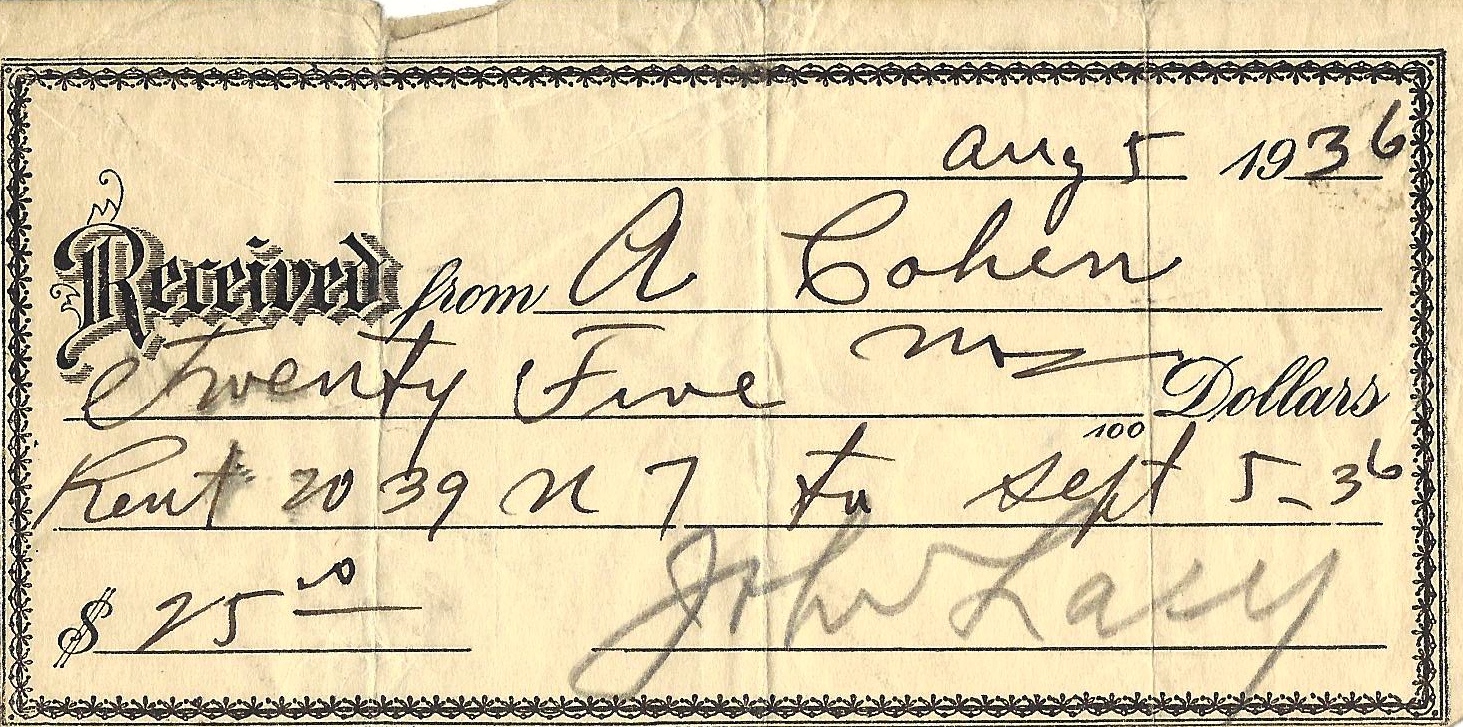 Aug 5 1936
Received from A Cohen
Twenty Five no/100 Dollars
Rent 2039 N 7 to Sept 5-36
$ 25 00 John Lacy